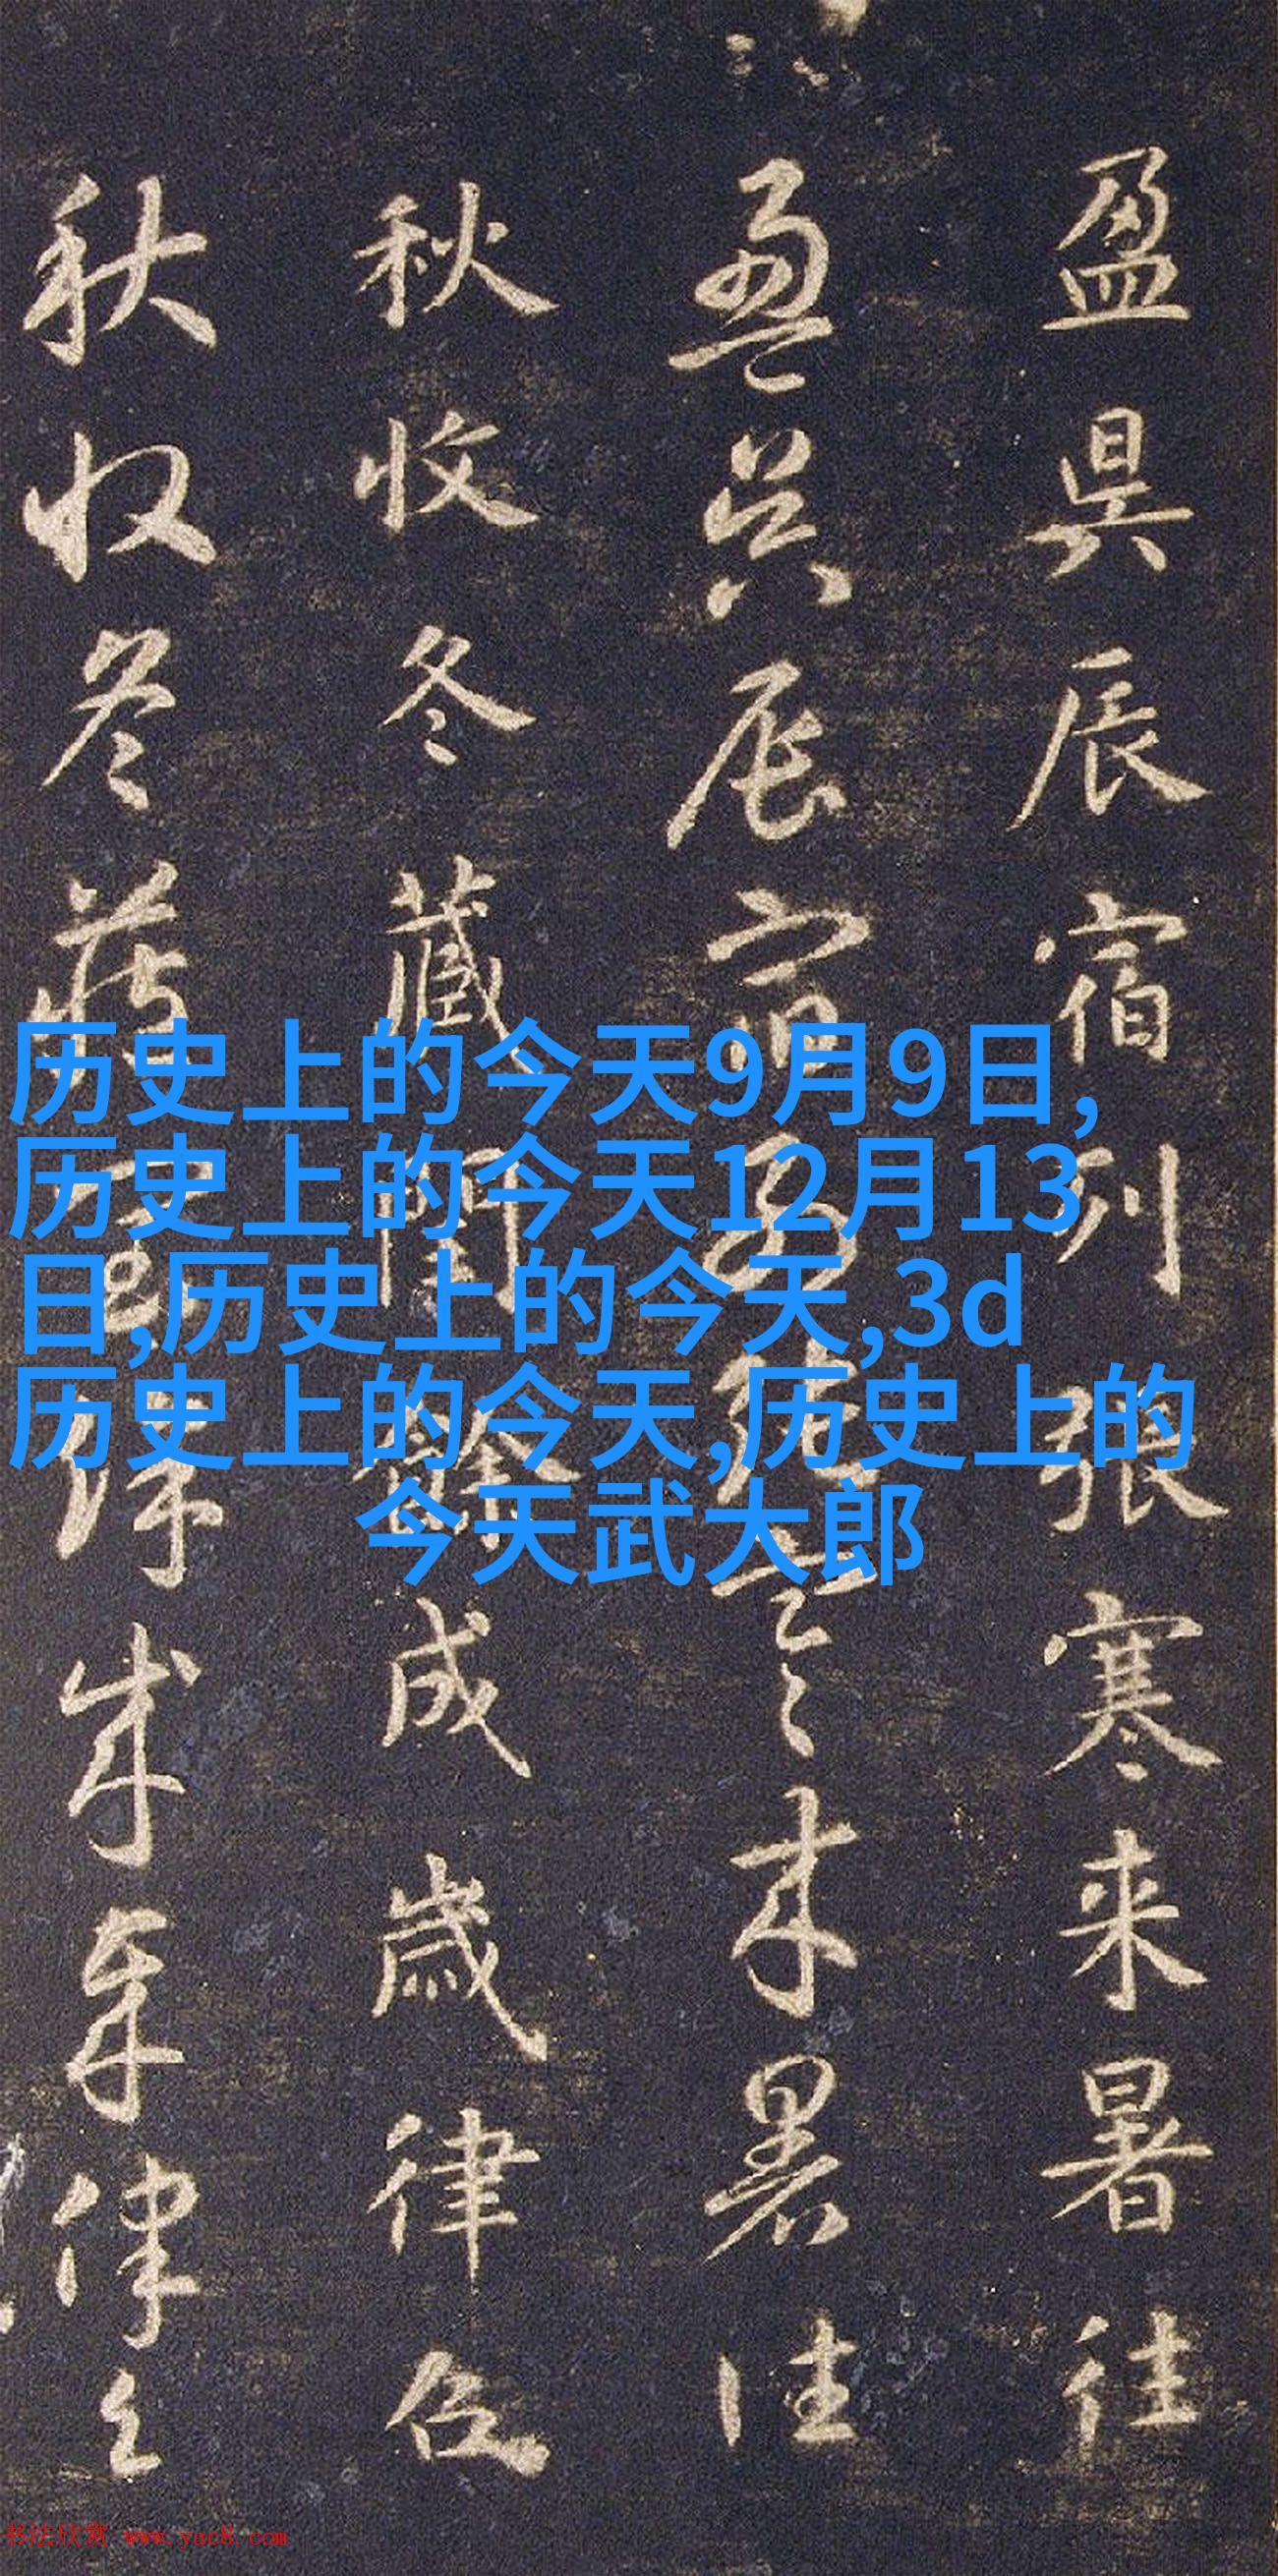 盈昃辰宿列張寒来暑往
盈昃辰宿列張寒来暑往
秋收冬藏閏餘成歲律召
秋收冬藏閏餘成歲律召
历史上的今天9月9日,
历史上的今天12月13
日,历史上的今天,3d
历史上的今天,历史上的
今天武大郎
书法欣赏 www.yac8.com